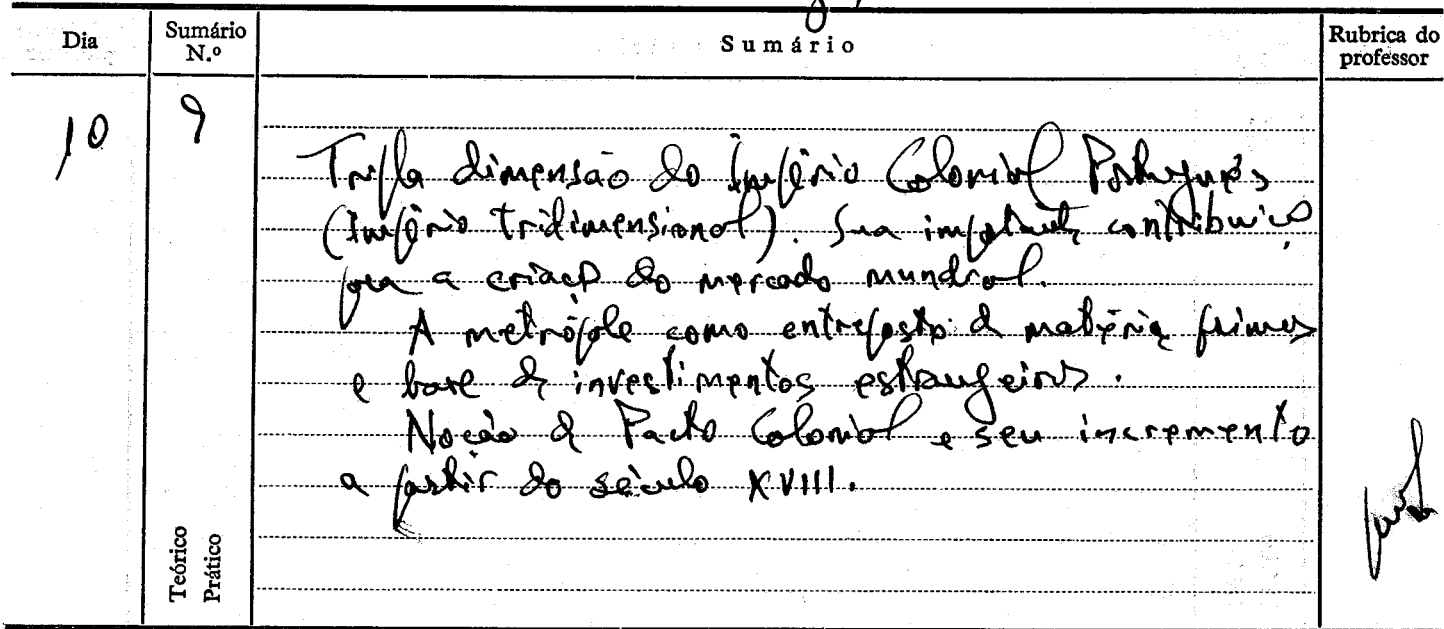 Dia Sumário N.º Sumário Rubrica do professor
10 9
Tripla dimensão do Império Colonial Português
(Império tridimensional). Sua importante contribuição
para a criação do mercado mundial.
A metrópole como entreposto de matérias primas
e base de investimentos estrangeiros.
Noção de Pacto Colonial e seu incremento
a partir do século XVIII.
Teórico
Prático